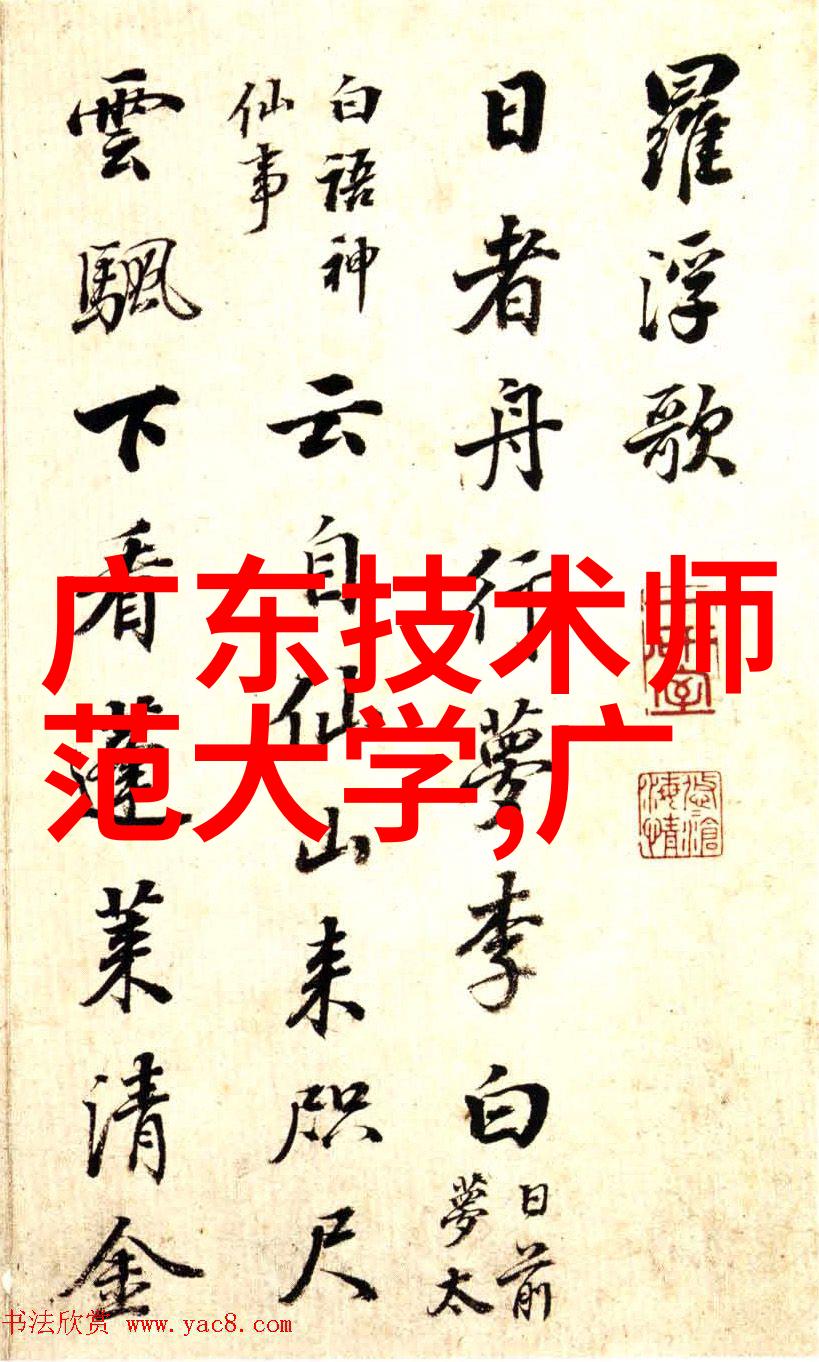 羅浮歌
日者舟行夢李白
日前
夢太
白語神
仙事
云自仙山来咫尺
雲颿下看蓬萊清金
广东技术师
范大学,广
书法欣赏 www.yac8.com